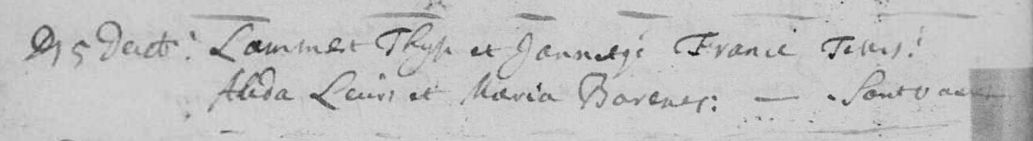 D 15 Dect: Lammert Thyss et Jannetje France Testes:
Alida Leurs et Maria Barenes: — Santv